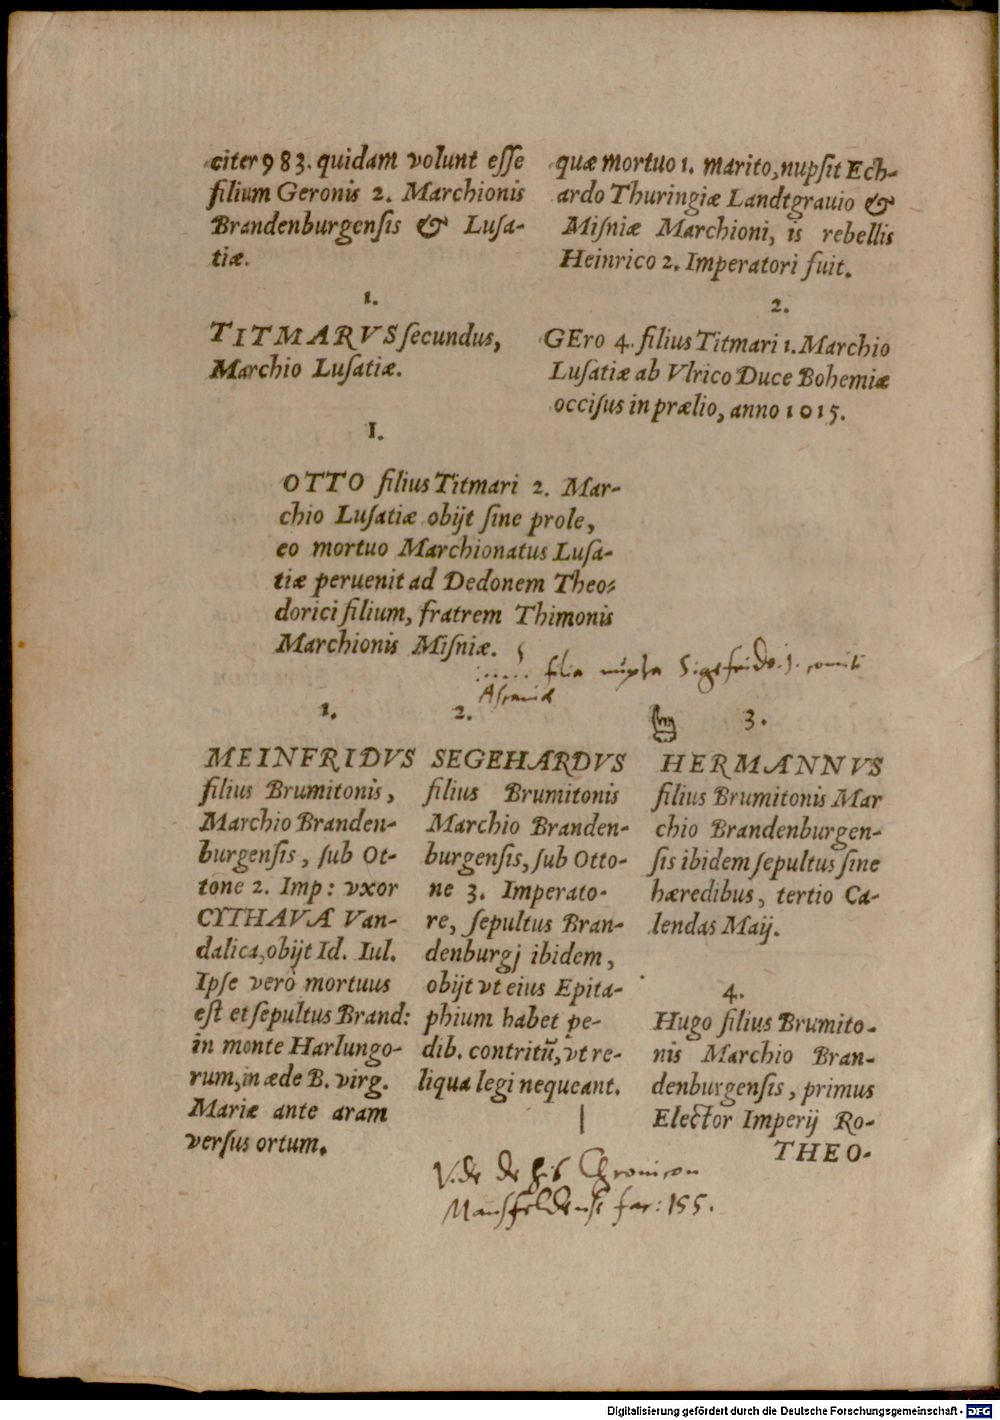 citer 983. quidam volunt eſſe
filium Geronis 2. Marchionis
Brandenburgenſis & Luſa-
tiæ.
quæ mortuo 1. marito, nupſit Ech-
ardo Thuringiæ Landtgrauio &
Miſniæ Marchioni, is rebellis
Heinrico 2. Imperatori fuit.
1.
TITMARVS ſecundus,
Marchio Luſatiæ.
2.
GEro 4. filius Titmari 1. Marchio
Luſatiæ ab Vlrico Duce Bohemiæ
occiſus in prælio, anno 1015.
I.
OTTO filius Titmari 2. Mar-
chio Luſatiæ obijt ſine prole,
eo mortuo Marchionatus Luſa-
tiæ peruenit ad Dedonem Theo-
dorici filium, fratrem Thimonis
Marchionis Miſniæ.
...... filia nupta Sigefrido. j. comiti
Aſcaniæ
1.
MEINFRIDVS
filius Brumitonis,
Marchio Branden-
burgenſis, ſub Ot-
tone 2. Imp: vxor
CYTHAVA Van-
dalica, obijt Id. Iul.
Ipſe verò mortuus
eſt et ſepultus Brand:
in monte Harlungo-
rum, in æde B. virg.
Mariæ ante aram
verſus ortum.
2.
SEGEHARDVS
filius Brumitonis
Marchio Branden-
burgenſis, ſub Otto-
ne 3. Imperato-
re, ſepultus Bran-
denburgj ibidem,
obijt vt eius Epita-
phium habet pe-
dib. contritũ, vt re-
liqua legi nequeant.
3.
HERMANNVS
filius Brumitonis Mar
chio Brandenburgen-
ſis ibidem ſepultus ſine
hæredibus, tertio Ca-
lendas Maij.
4.
Hugo filius Brumito-
nis Marchio Bran-
denburgenſis, primus
Elector Imperij Ro-
THEO-
Vide de his Chronicon
Mansfeldense fac: 155.
Digitalisierung gefördert durch die Deutsche Forschungsgemeinschaft - DFG